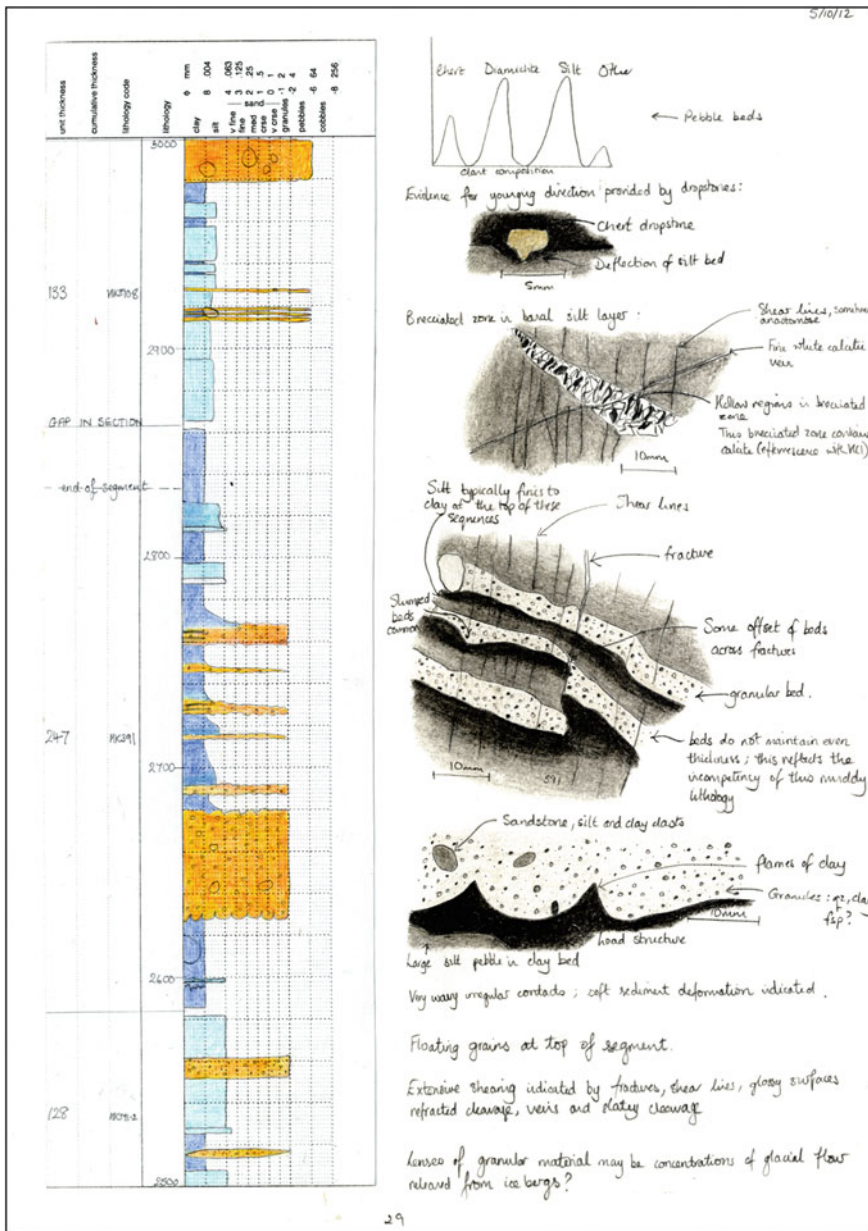 5/10/12
unit thickness
cumulative thickness
lithology code
lithology
ϕ mm
clay
8 .004
silt
4 .063
v fine
3 .125
fine
2 .25
med
1 .5
crse
0 1
v crse
-1 2
granules
-2 4
pebbles
-6 64
cobbles
-8 256
sand
3000
133
2900
GAP IN SECTION
end of segment
2800
247
2700
2600
128
2500
Chert Diamictite Silt Other
Pebble beds
Clast composition
Evidence for younging direction provided by dropstones:
Chert dropstone
Deflection of silt bed
5mm
Brecciated zone in basal silt layer:
Shear lines,
anastomose
Fine white calcite
vein
Hollow regions in brecciated
zone
This brecciated zone contain
calcite (effervescence with HCl)
10mm
Silt typically fines to
clay at the top of these
sequences
Shear lines
fracture
Slumped
beds
common
Some offset of beds
across fractures
granular bed.
beds do not maintain even
thickness; this reflects the
incompetency of this muddy
lithology
10mm
Sandstone, silt and clay clasts
flames of clay
Granules: qz, cla
fsp?
10mm
load structure
Large silt pebble in clay bed
Very wavy irregular contacts; soft sediment deformation indicated.
Floating grains at top of segment.
Extensive shearing indicated by fractures, shear lies, glossy surfaces
refracted cleavage, veins and slatey cleavage
Lenses of granular material may be concentrations of glacial flow
released from ice bergs?
29